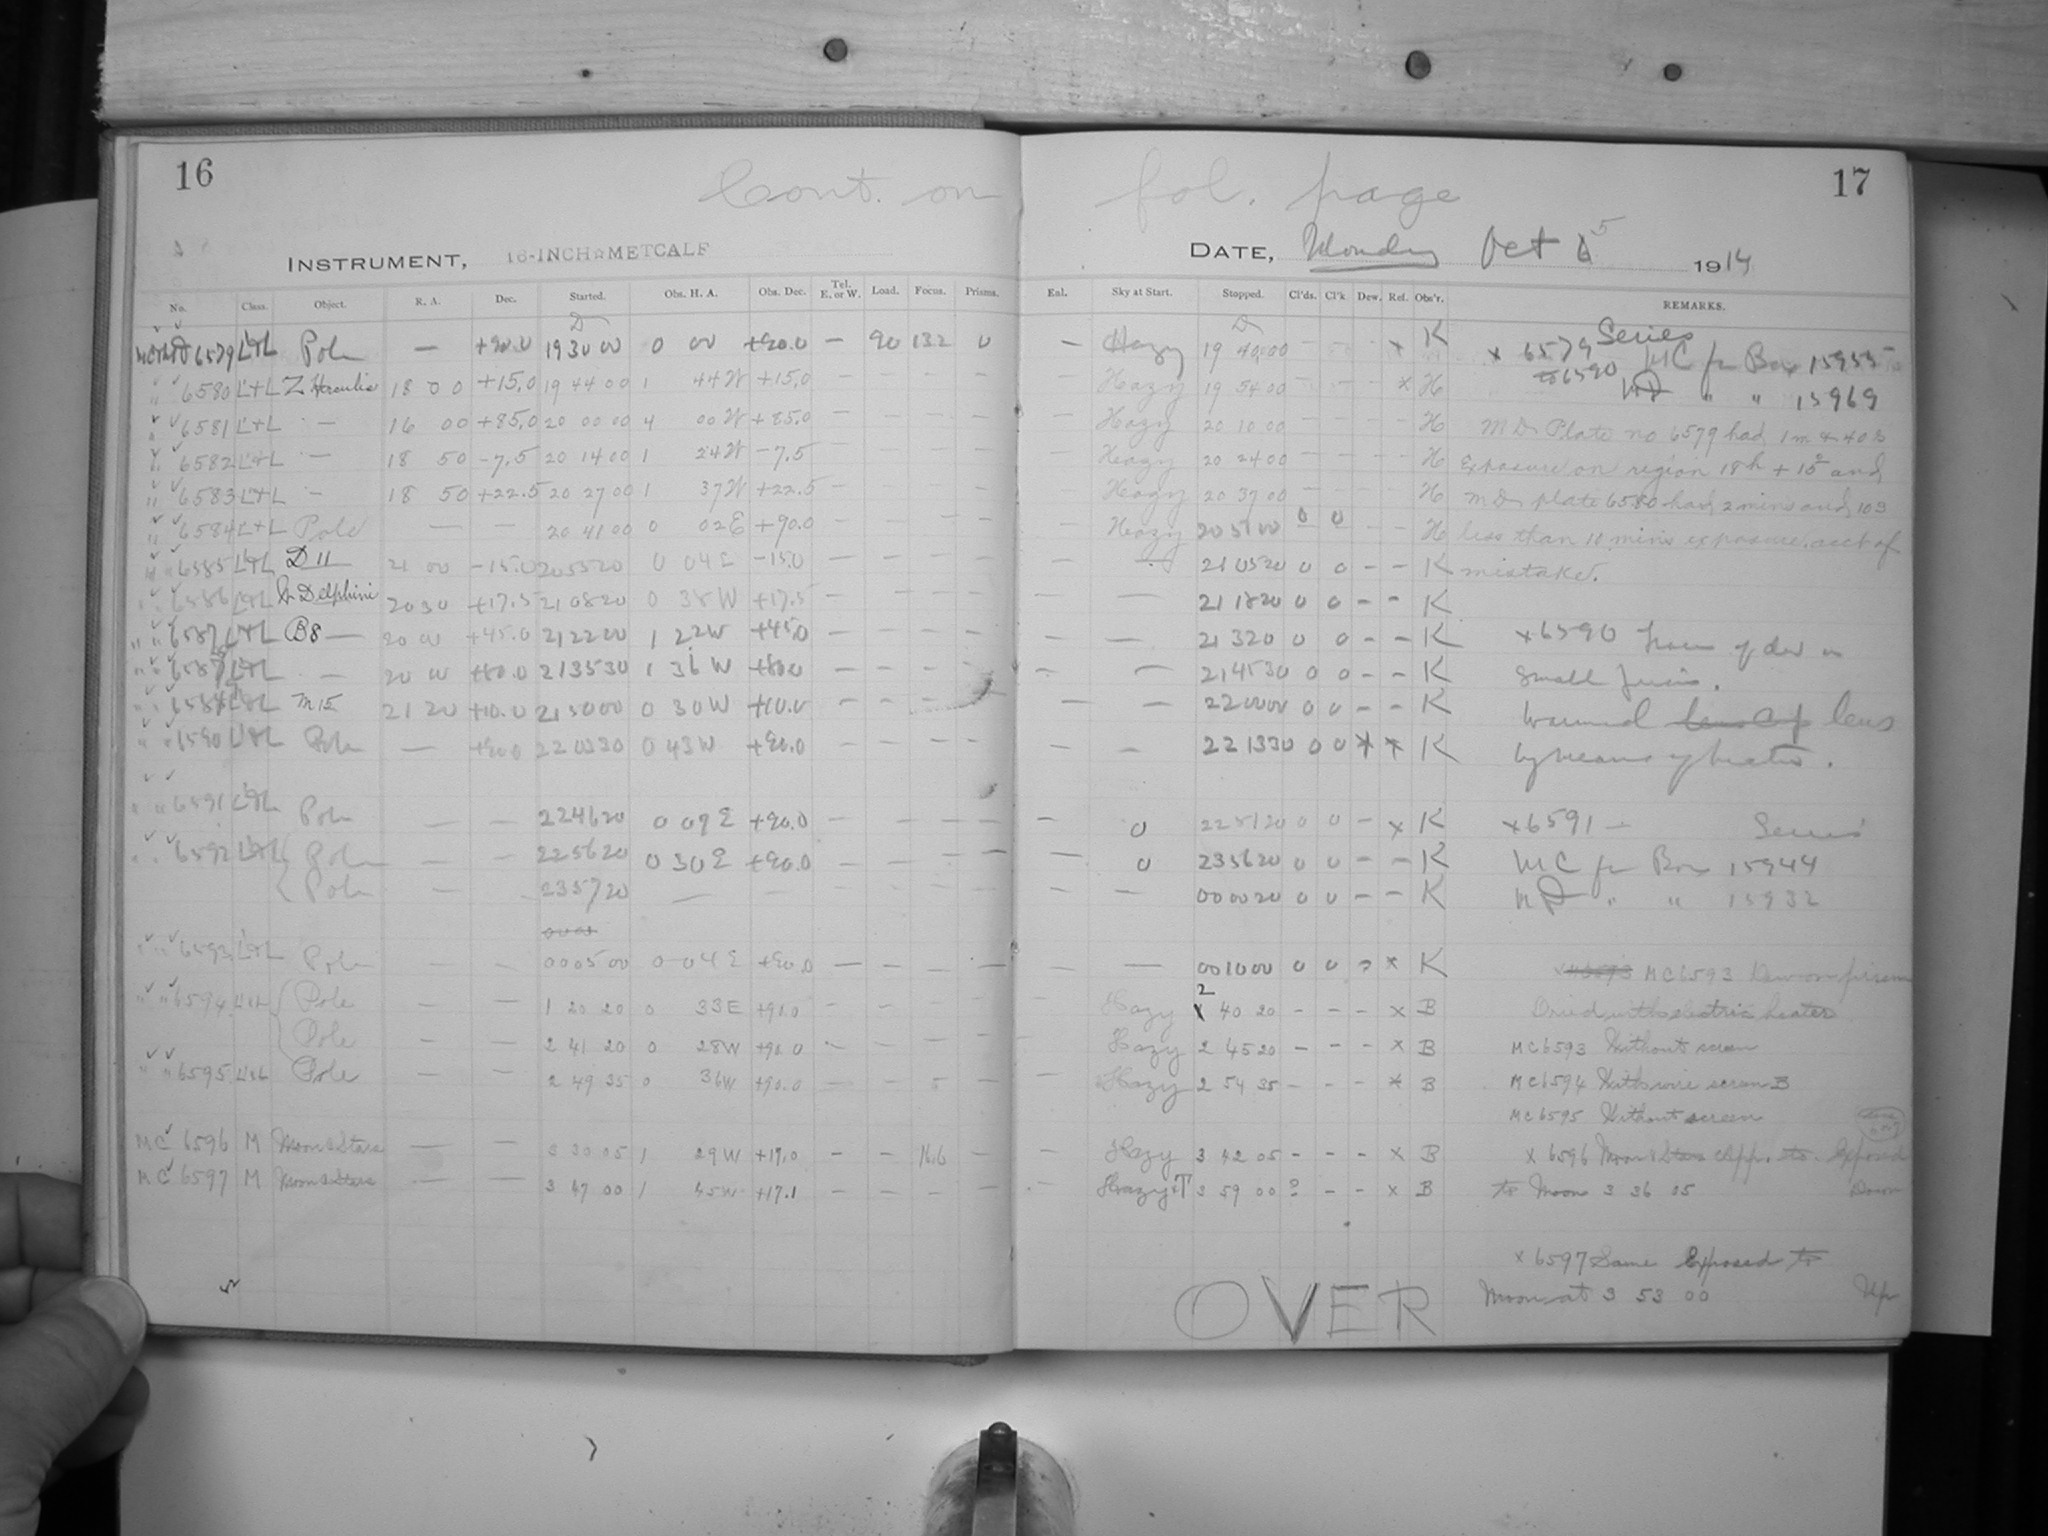 16
17
Cont. on fol. page
INSTRUMENT, 16-INCH METCALF
DATE, Monday Oct 5 1914
No. Class. Object. R. A. Dec. Started. Obs. H. A. Obs. Dec. Tel. E. or W. Load. Focus. Prisms. Eal. Sky at Start. Stopped. Cl'ds. Cl'k Dew. Ref. Obs'r. REMARKS.
6579 L+L Pole — +90.0 19 30 00 0 00 +90.0 — 90 132 0 — Hazy 19 40 00 — — x K x 6579 Series
to 6590 MC fr Box 15955
" " 6580 L+L Z Herculis 18 00 +15.0 19 44 00 1 44 W +15.0 — — — — — Hazy 19 54 00 — — — x H MD " " 15969
" " 6581 L+L — 16 00 +85.0 20 00 00 4 00 W +85.0 — — — — — Hazy 20 10 00 — — — — H MD Plate no 6579 had 1m & 40s
" " 6582 L+L — 18 50 -7.5 20 14 00 1 24 W -7.5 — — — — — Hazy 20 24 00 — — — — H Exposure on region 18h + 15° and
" " 6583 L+L — 18 50 +22.5 20 27 00 1 37 W +22.5 — — — — — Hazy 20 37 00 — — — — H MD plate 6580 had 2 mins and 10s
" " 6584 L+L Pole — — 20 41 00 0 02 E +90.0 — — — — — Hazy 20 51 00 0 0 — — H less than 10 mins exposure. acct of
" " 6585 L+L D 11 21 00 -15.0 20 55 20 0 04 E -15.0 — — — — — — 21 05 20 0 0 — — K mistake.
" " 6586 L+L Delphini 20 30 +17.5 21 08 20 0 38 W +17.5 — — — — — — 21 18 20 0 0 — — K
" " 6587 L+L B8 — 20 00 +45.0 21 22 00 1 22 W +45.0 — — — — — — 21 32 0 0 0 — — K x 6590 of dew on
L+L — 20 00 +80.0 21 35 30 1 36 W +80.0 — — — — — — 21 45 30 0 0 — — K small prism.
L+L M 15 21 20 +10.0 21 50 00 0 30 W +10.0 — — — — — — 22 00 00 0 0 — — K Warmed lens
" " 1590 L+L Pole — +90.0 22 03 30 0 43 W +90.0 — — — — — — 22 13 30 0 0 x x K by means of heater.
" " 6591 L+L Pole — — 22 46 20 0 09 E +90.0 — — — — — 0 22 51 20 0 0 — x K x 6591 — Series
" " 6592 L+L Pole — — 22 56 20 0 30 E +90.0 — — — — — 0 23 56 20 0 0 — — K MC fr Box 15944
Pole — 23 57 20 — — — — — — — — 00 00 20 0 0 — — K MD " " 15932
" " 6593 L+L Pole — — 00 05 00 0 04 E +90.0 — — — — — — 00 10 00 0 0 ? x K MC 6593 Dew on prism
" " 6594 L+L Pole — — 1 20 20 0 33 E +90.0 — — — Hazy 2 40 20 — — — x B Dried with electric heater
Pole — — 2 41 20 0 28 W +90.0 — — — — — Hazy 2 45 20 — — — x B MC 6593 Without screen
" " 6595 L+L Pole — — 2 49 35 0 36 W +90.0 — — — — Hazy 2 54 35 — — — x B MC 6594 With wire screen B
MC 6595 Without screen
MC 6596 M Moon & Stars — — 3 30 05 1 29 W +17.0 — — 16.6 — — Hazy 3 42 05 — — — x B x 6596 Moon & Stars Exposed
MC 6597 M Moon & Stars — — 3 47 00 1 45 W +17.1 — — — — — Hazy T 3 59 00 ? — — x B to Moon 3 36 05 Down
x 6597 Same Exposed to
Moon at 3 53 00 Up
OVER